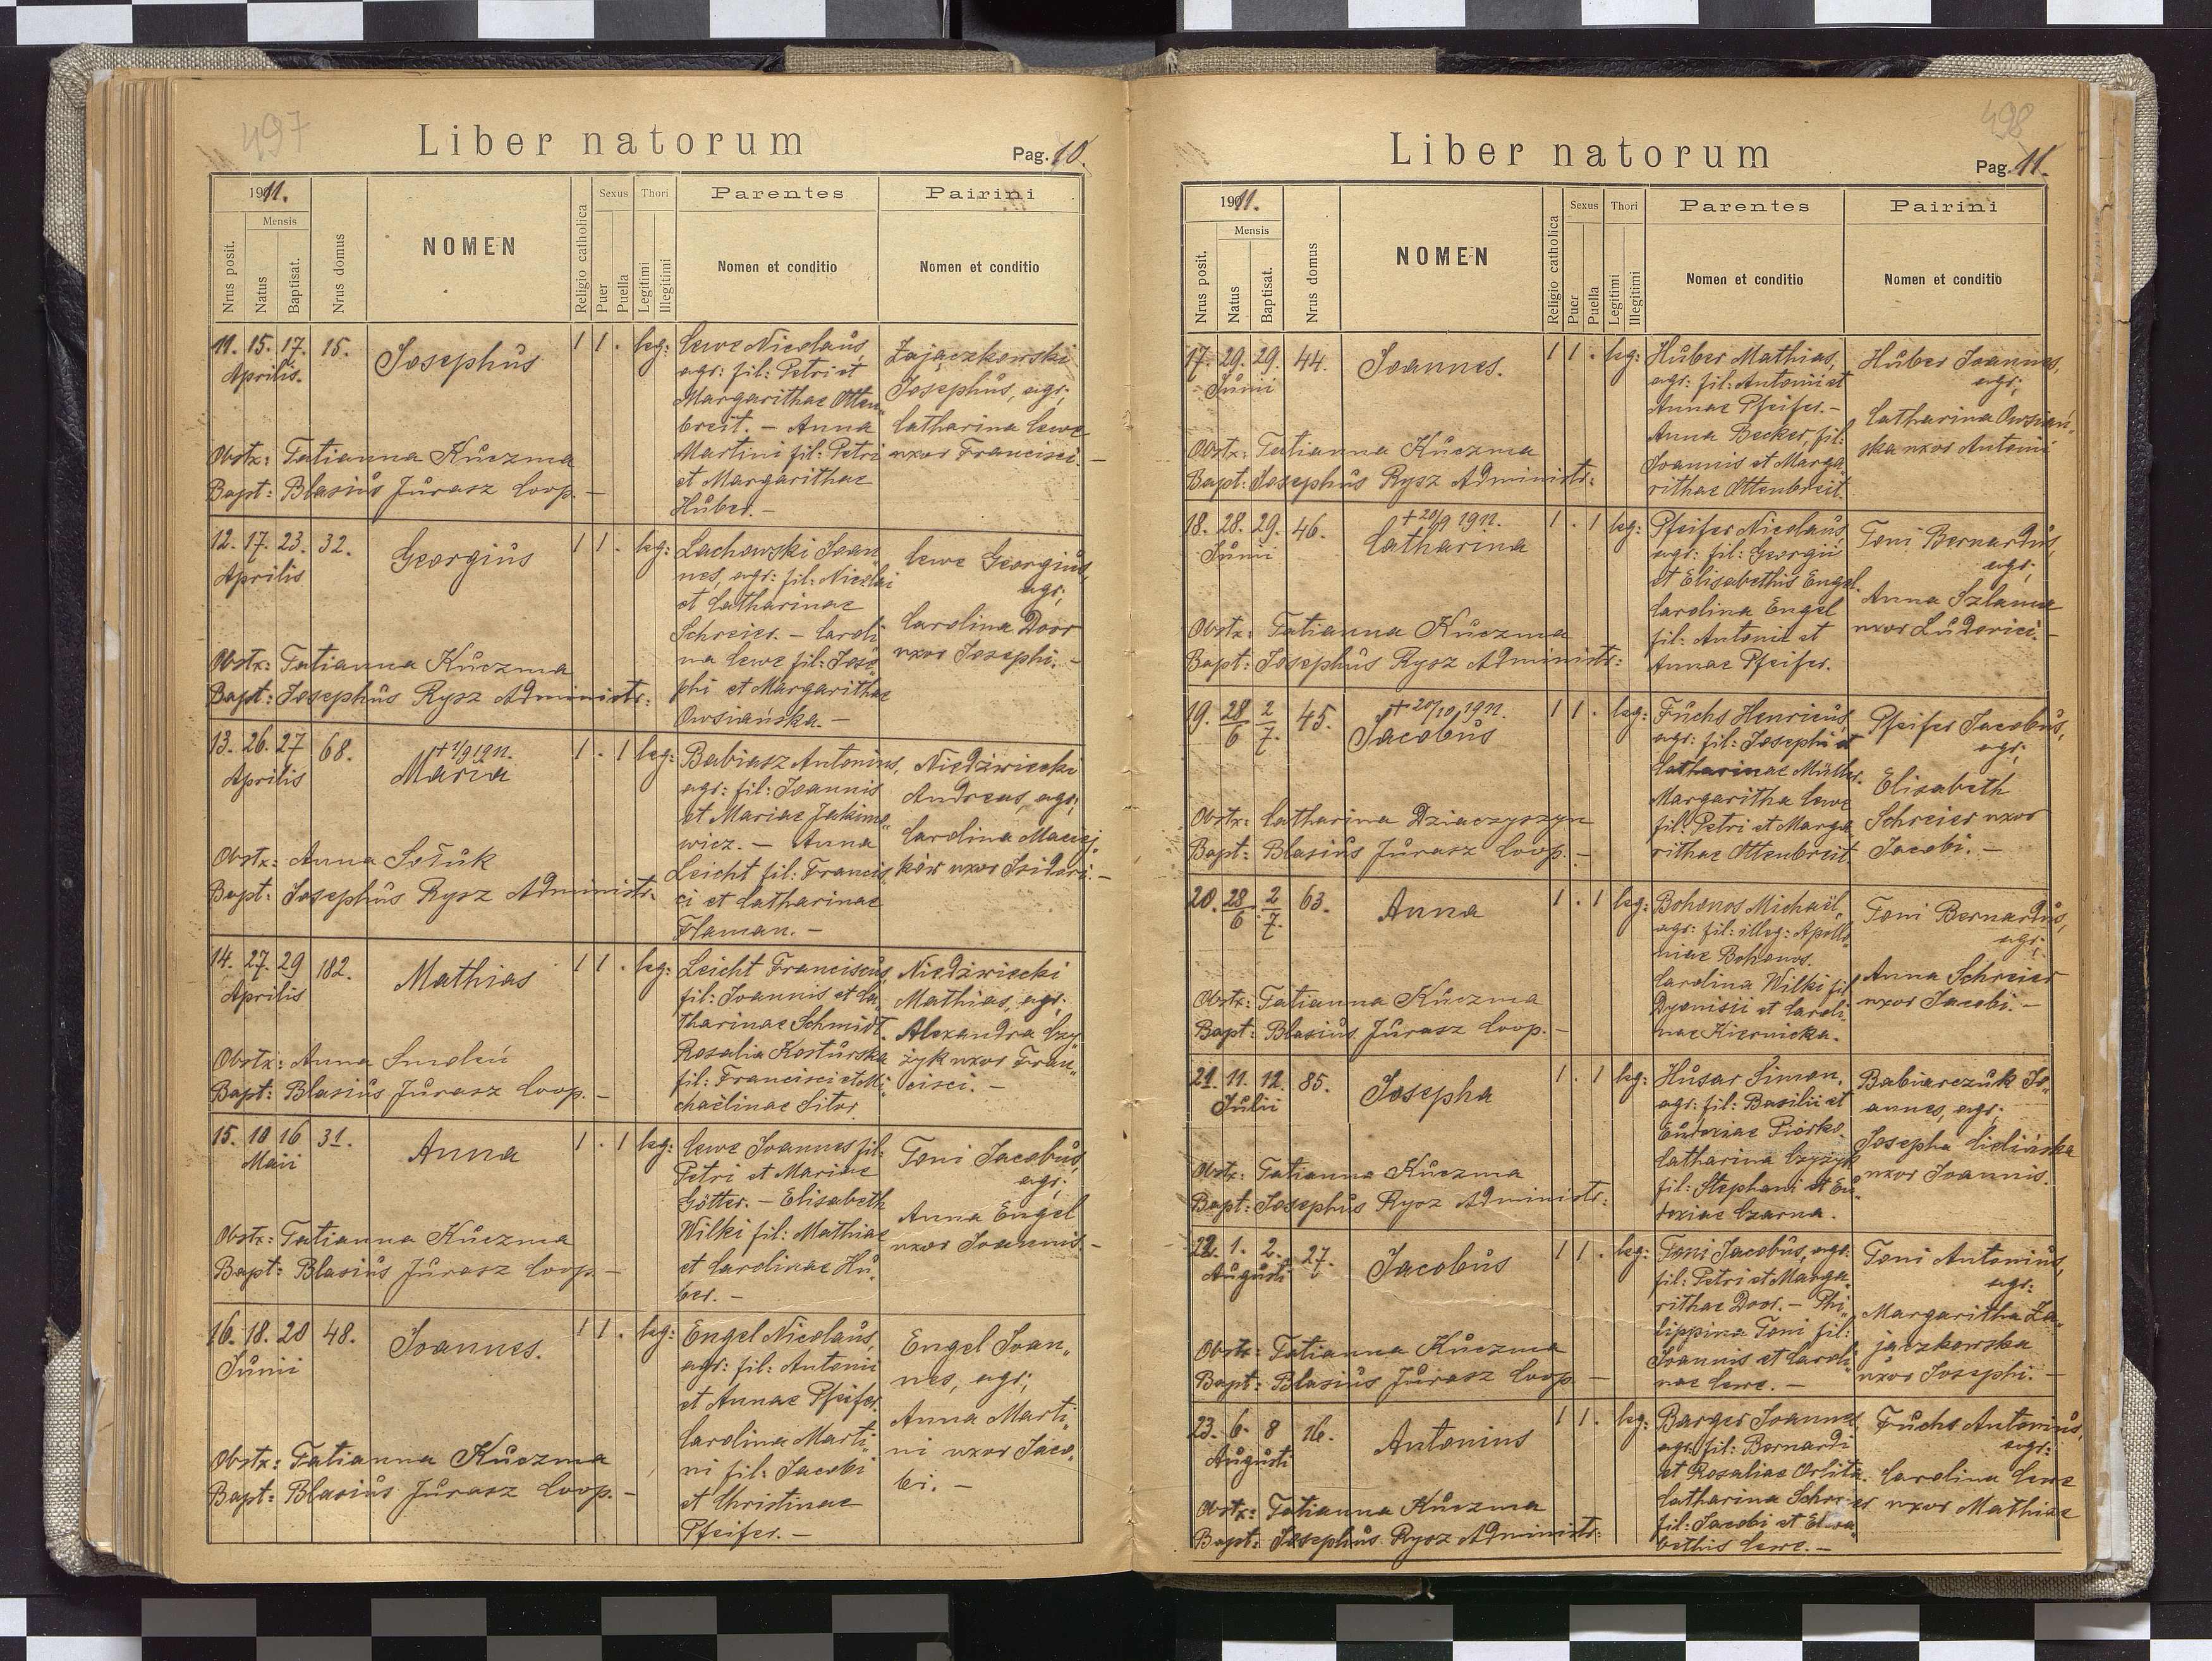 497
Liber natorum
Pag. 10.
1911.
Mensis
Nrus posit.
Natus
Baptisat.
Nrus domus
NOMEN
Religio catholica
Sexus
Puer
Puella
Thori
Legitimi
Illegitimi
Parentes
Nomen et conditio
Pairini
Nomen et conditio
11. 15. 17. 15. Josephus 1 1 . leg:
Aprilis.
Lewe Nicolaus,
agr: fil: Petri et
Margarithae Otten„
breit. – Anna
Martini fil: Petri
et Margarithae
Huber. –
Zajączkowski
Josephus, agr;
Catharina Lewe
uxor Francisci. –
Obstx: Tatianna Kuczma
Bapt: Blasius Jurasz Coop. –
12. 17. 23. 32. Georgius 1 1 . leg:
Aprilis
Lachowski Joan„
nes, agr: fil: Nicolai
et Catharinae
Schreier. – Caroli„
na Lewe fil: Jose„
phi et Margarithae
Owsiańska. –
Lewe Georgius,
agr;
Carolina Door
uxor Josephi. –
Obstx: Tatianna Kuczma
Bapt: Josephus Rysz Administr:
13. 26. 27 68. + 1/9 1911.
Aprilis
Maria 1 . 1 leg:
Babiasz Antonius,
agr: fil: Joannis
et Mariae Jakimo„
wicz. – Anna
Leicht fil: Francis„
ci et Catharinae
Flaman. –
Niedźwiecki
Andreas, agr;
Carolina Maciej„
ków uxor Isidori. –
Obstx: Anna
Bapt: Josephus Rysz Administr:
14. 27. 29 182. Mathias 1 1 . leg:
Aprilis
Leicht Franciscus,
fil: Joannis et Ca„
tharinae Schmidt.
Rosalia Kosturska
fil: Francisci et Mi„
chaëlinae Sitor.
Niedźwiecki
Mathias, agr;
Alexandra Czy„
żyk uxor Fran„
cisci. –
Obstx: Anna Smoleń
Bapt: Blasius Jurasz Coop. –
15. 10 16 31. Anna 1 . 1 leg:
Maii
Lewe Joannes fil:
Petri et Mariae
Götter. – Elisabeth
Wilki fil: Mathiae
et Carolinae Hu„
ber. –
Toni Jacobus,
agr;
Anna Engel
uxor Joannis. –
Obstx: Tatianna Kuczma
Bapt: Blasius Jurasz Coop. –
16. 18. 20 48. Joannes. 1 1 . leg:
Junii
Engel Nicolaus,
agr: fil: Antonii
et Annae Pfeifer.
Carolina Marti„
ni fil: Jacobi
et Christinae
Pfeifer. –
Engel Joan„
nes, agr;
Anna Marti„
ni uxor Jaco„
bi. –
Obstx: Tatianna Kuczma
Bapt: Blasius Jurasz Coop. –
498
Liber natorum
Pag. 11.
1911.
Mensis
Nrus posit.
Natus
Baptisat.
Nrus domus
NOMEN
Religio catholica
Sexus
Puer
Puella
Thori
Legitimi
Illegitimi
Parentes
Nomen et conditio
Pairini
Nomen et conditio
17. 29. 29. 44. Joannes. 1 1 . leg:
Junii
Huber Mathias,
agr: fil: Antonii et
Annae Pfeifer. –
Anna Becker, fil:
Joannis et Marga„
rithae Ottenbreit.
Huber Joannes,
agr;
Catharina Owsiań„
ska uxor Antonii
Obstx: Tatianna Kuczma
Bapt: Josephus Rysz Administr:
18. 28. 29. 46. + 20/9 1911.
Junii
Catharina 1 . 1 leg:
Pfeifer Nicolaus,
agr: fil: Georgii
et Elisabethis Engel.
Carolina Engel
fil: Antonii et
Annae Pfeifer.
Toni Bernardus,
agr;
Anna Szlama
uxor Ludovici. –
Obstx: Tatianna Kuczma
Bapt: Josephus Rysz Administr:
19. 28/6 2/7. 45. + 20/10 1911.
Jacobus 1 1 . leg:
Fuchs Henricus,
agr: fil: Josephi et
Catharinae Müller.
Margaritha Lewe
fil: Petri et Marga„
rithae Ottenbreit.
Pfeifer Jacobus,
agr;
Elisabeth
Schreier uxor
Jacobi. –
Obstx: Catharina Dziaczyszyn
Bapt: Blasius Jurasz Coop. –
20. 28/6 2/7. 63. Anna 1 . 1 leg:
Bohonos Michaël,
agr: fil: illeg: Apollo„
niae Bohonos.
Carolina Wilki fil:
Dyonisii et Caroli„
nae Kiernicka.
Toni Bernardus,
agr;
Anna Schreier
uxor Jacobi. –
Obstx: Tatianna Kuczma
Bapt: Blasius Jurasz Coop. –
21. 11. 12. 85. Josepha 1 . 1 leg:
Julii
Husar Simon,
agr: fil: Basilii et
Eudoxiae Piórko.
Catharina Czyżyk
fil: Stephani et Eu„
doxiae Czarna.
Babiarczuk Jo„
annes, agr;
Josepha Cielińska
uxor Joannis.
Obstx: Tatianna Kuczma
Bapt: Josephus Rysz Administr:
22. 1. 2. 27. Jacobus 1 1 . leg:
Augusti
Toni Jacobus, agr:
fil: Petri et Marga„
rithae Door. – Phi„
lippina Toni fil:
Joannis et Caroli„
nae Lewe. –
Toni Antonius,
agr:
Margaritha Za„
jączkowska
uxor Josephi. –
Obstx: Tatianna Kuczma
Bapt: Blasius Jurasz Coop. –
23. 6. 8 16. Antonius 1 1 . leg:
Augusti
Barger Joannes
agr: fil: Bernardi
et Rosaliae Orlitz.
Catharina Schreier
fil: Jacobi et Elisa„
bethis Lewe. –
Fuchs Antonius,
agr:
Carolina Lewe
uxor Mathiae
Obstx: Tatianna Kuczma
Bapt: Josephus Rysz Administr: